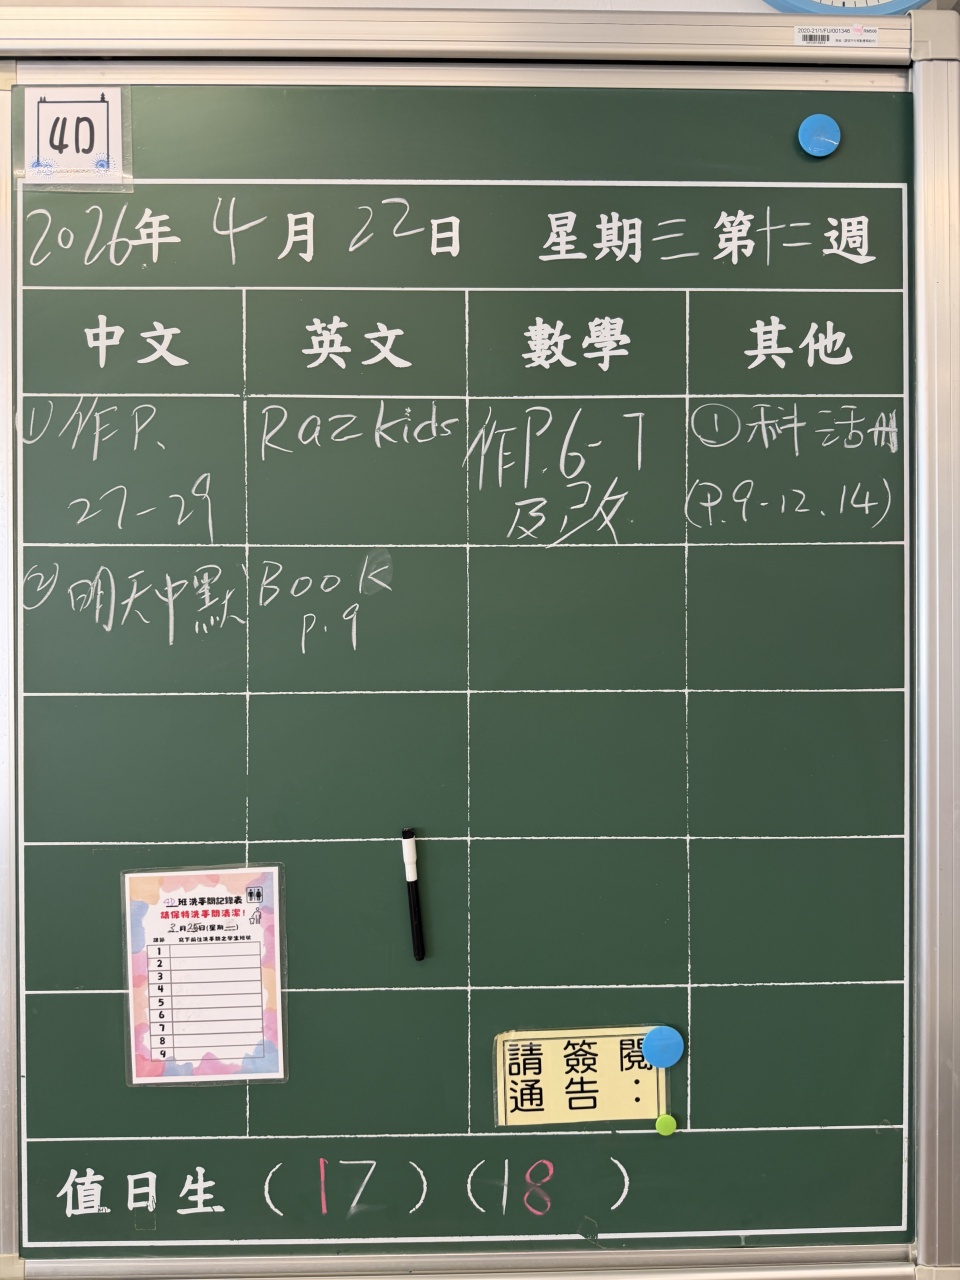 2020-21/1/FU/001346
4D
2026年 4月 22日 星期三 第十二週
中文 英文 數學 其他
①作P.
27-29
Raz kids
作P.6-7
及改
①科活冊
(P.9-12、14)
②明天中默
Book
P.9
4D班洗手間記錄表
請保持洗手間清潔!
3月25日(星期三)
課節
1
2
3
4
5
6
7
8
9
請簽閱
通告:
值日生 (17) (18)